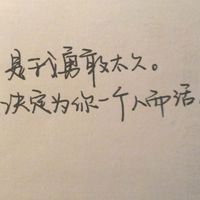 是我勇敢太久。
决定为你一个人而活.